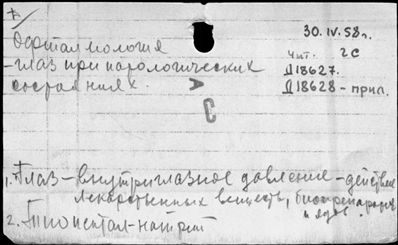 Офталмология
30.IV.58г.
- глаз при патологических
состояниях.
Чит. 2С
Д18627.
Д18628 - прил.
А
С
1. Глаз - внутриглазное давление - действие
лекарственных веществ, биопрепаратов
и ядов.
2. Тиопентал-натрий